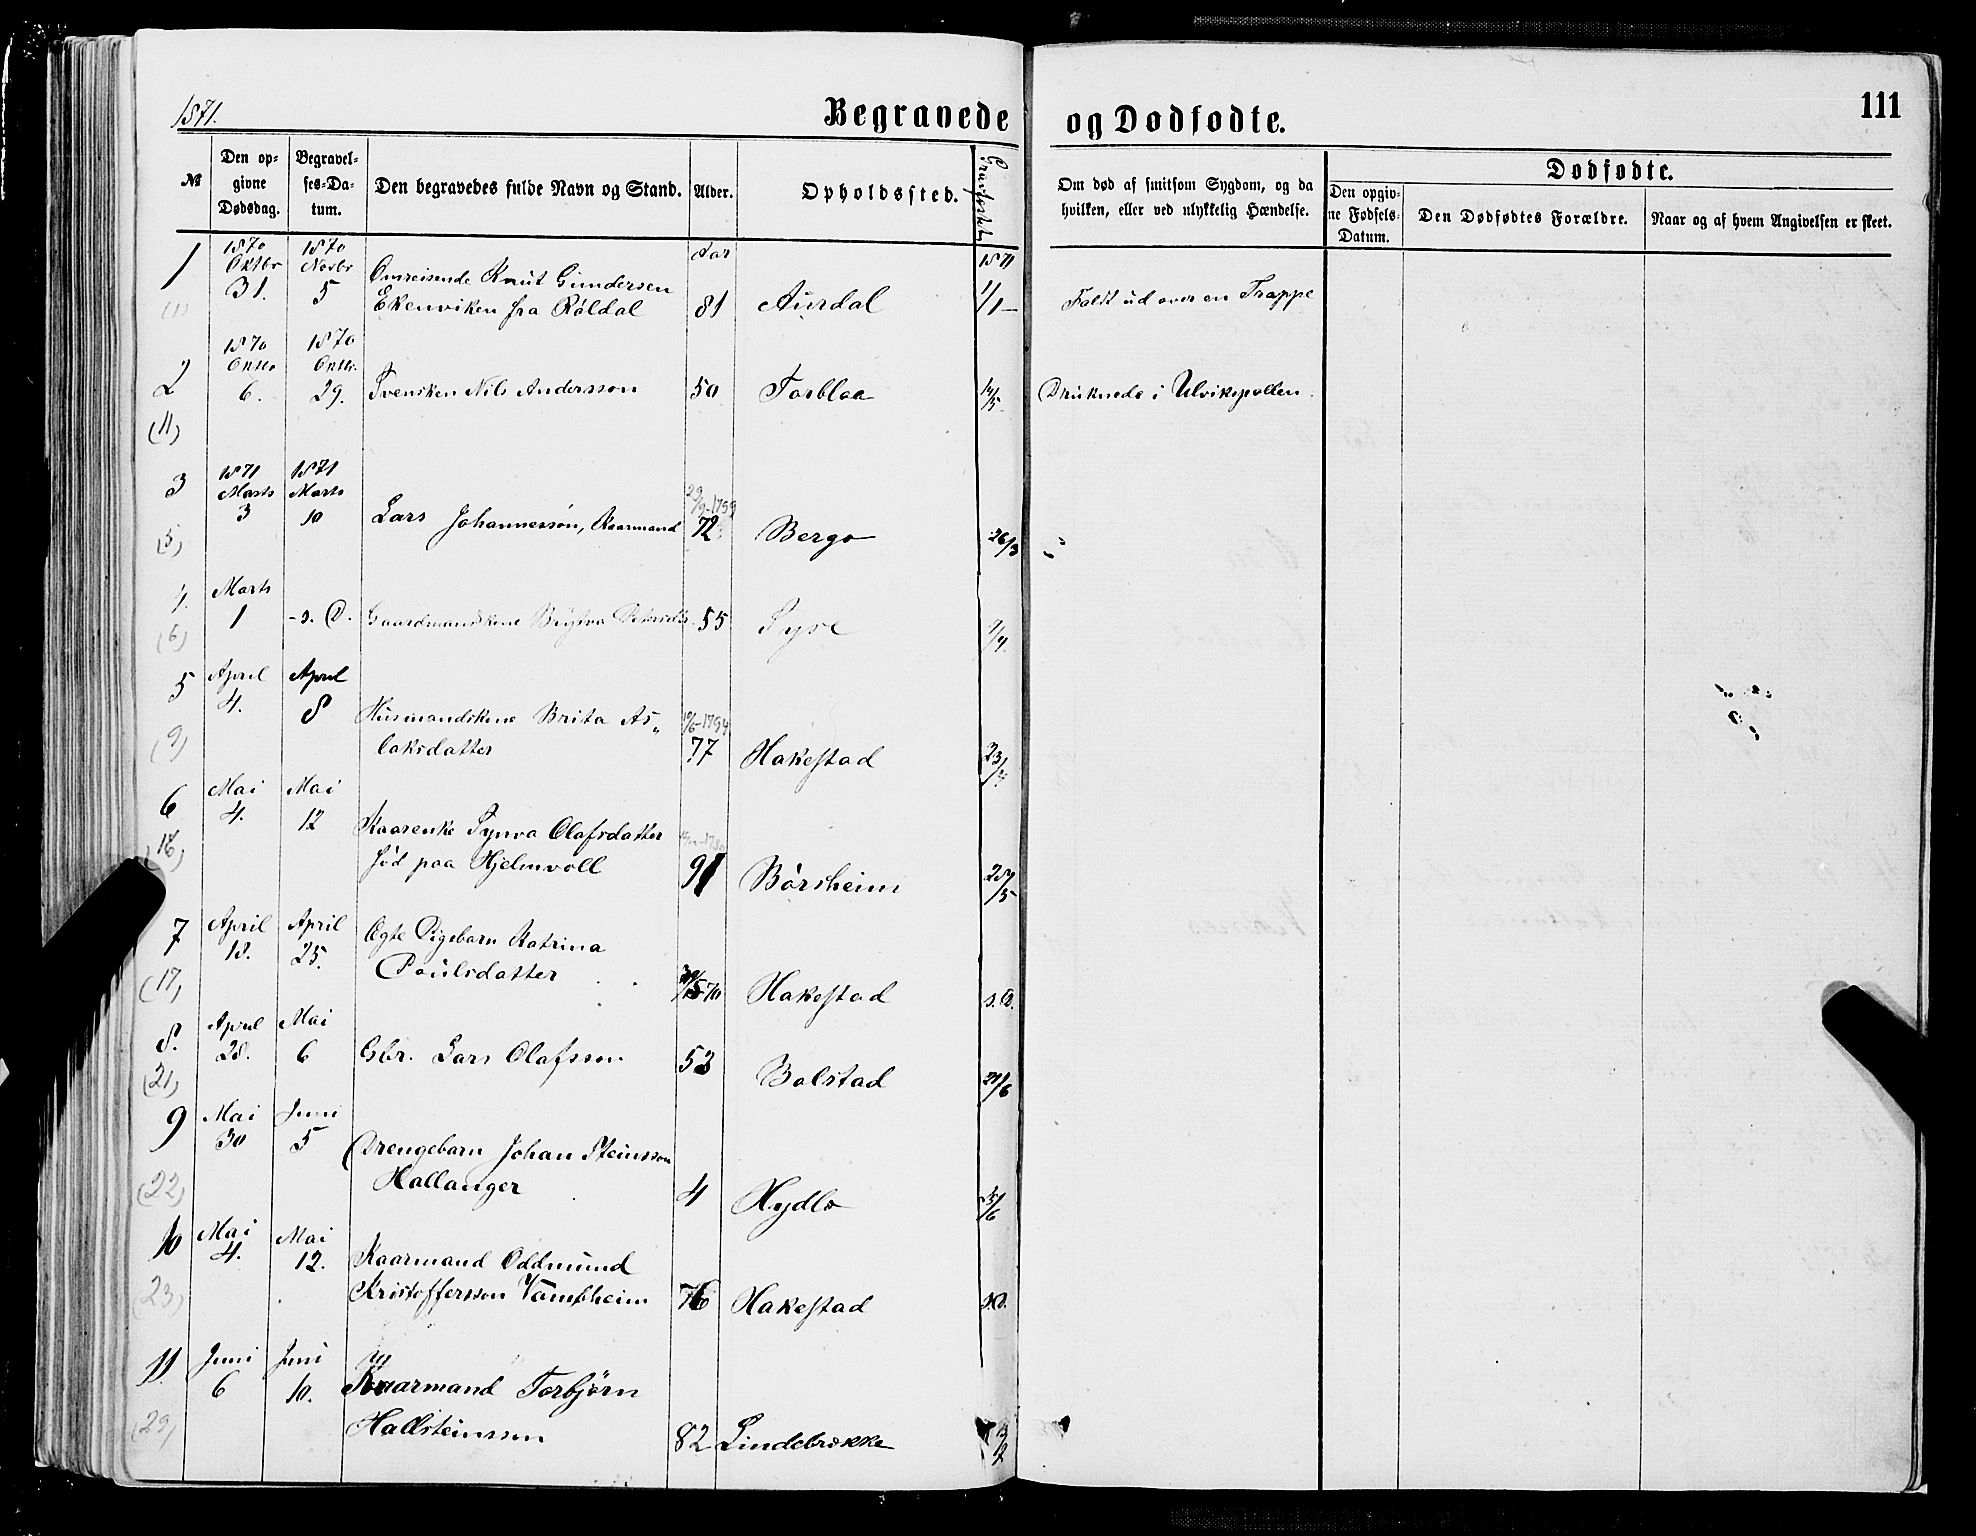 1871.
Begravede og Dødfødte.
111
№
Den op-
givne
Dødsdag.
Begravel-
ses-Da-
tum.
Den begravedes fulde Navn og Stand.
Alder.
Opholdssted.
Om død af smitsom Sygdom, og da
hvilken, eller ved ulykkelig Hændelse.
Dødfødte.
Den opgiv-
ne Fødsels-
Datum.
Den Dødfødtes Forældre.
Naar og af hvem Angivelsen er skeet.
1 1870 Oktbr 31. 1870 Novbr 5 Omreisende Knut Gundersen
(1) Ekenviken fra Röldal Aar 81 Aurdal 1871 1/1 Faldt ud over en Trappe
2 1870 6. 1870 29. Svensken Nils Andersson 50 Torblaa 14/5 Druknede i Ulvikspollen.
(11)
3 1871 Marts 3 1871 Marts 10 Lars Johannesson, Kaarmand 29/9-1799 72 Berge 26/3
(5)
4. Marts 1 s. D. Gaardmandskone 55 Syse
(6)
5 April 4. April 8 Husmandskone Brita As„
(9) laksdatter 1794 77 Hakestad 23/4
6 Mai 4. Mai 12 Kaarenke Synva Olafsdatter
(18) fød paa Hjelmvoll 91 Börsheim 28/5
7 April 18. April 25. Ægte Pigebarn Katrina
(17) Poulsdatter 70 Hakestad s. D.
8. April 28. Mai 6 Gbr. Lars Olafsson 53 Bolstad 21/6
(21)
9 Mai 30 Juni 5 Drengebarn Johan Steinsson
(22) Hallanger 4 Hydle
10 Mai 4. Mai 12. Kaarmand Oddmund
(23) Kristoffersson 76 Hakestad s.D.
11. Juni 6 Juni 10. Kaarmand Torbjörn
(29) Hallsteinsson 82 Lindebrække